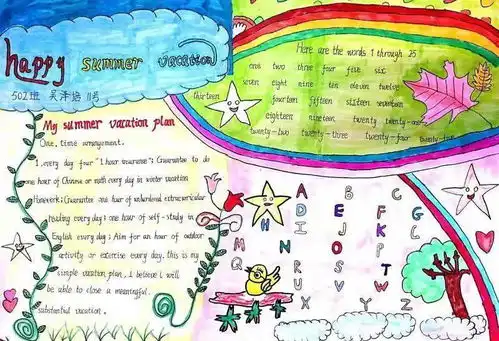 happy summer vacation
502班 吴泽培 11号
My summer vacation plan
One, time arrangement.
1. every day four "1 hour insurance": Guarantee to do
one hour of Chinese or math every day in winter vacation
Homework; Guarantee one hour of unlimited extracurricular
reading every day; one hour of self-study in
English every day; Aim for an hour of outdoor
activity or exercise every day. this is my
simple vacation plan, I believe I will
be able to close a meaningful.
substantial vacation.
Here are the words 1 through 25
one two three four five six
seven eight nine ten eleven twelve
thirteen fourteen fifteen sixteen seventeen
eighteen nineteen twenty twenty-one
twenty-two twenty-three twenty-four twenty-five
A B C
D E F G
H I J K L
M N O P
Q R S T
U V W
X Y Z